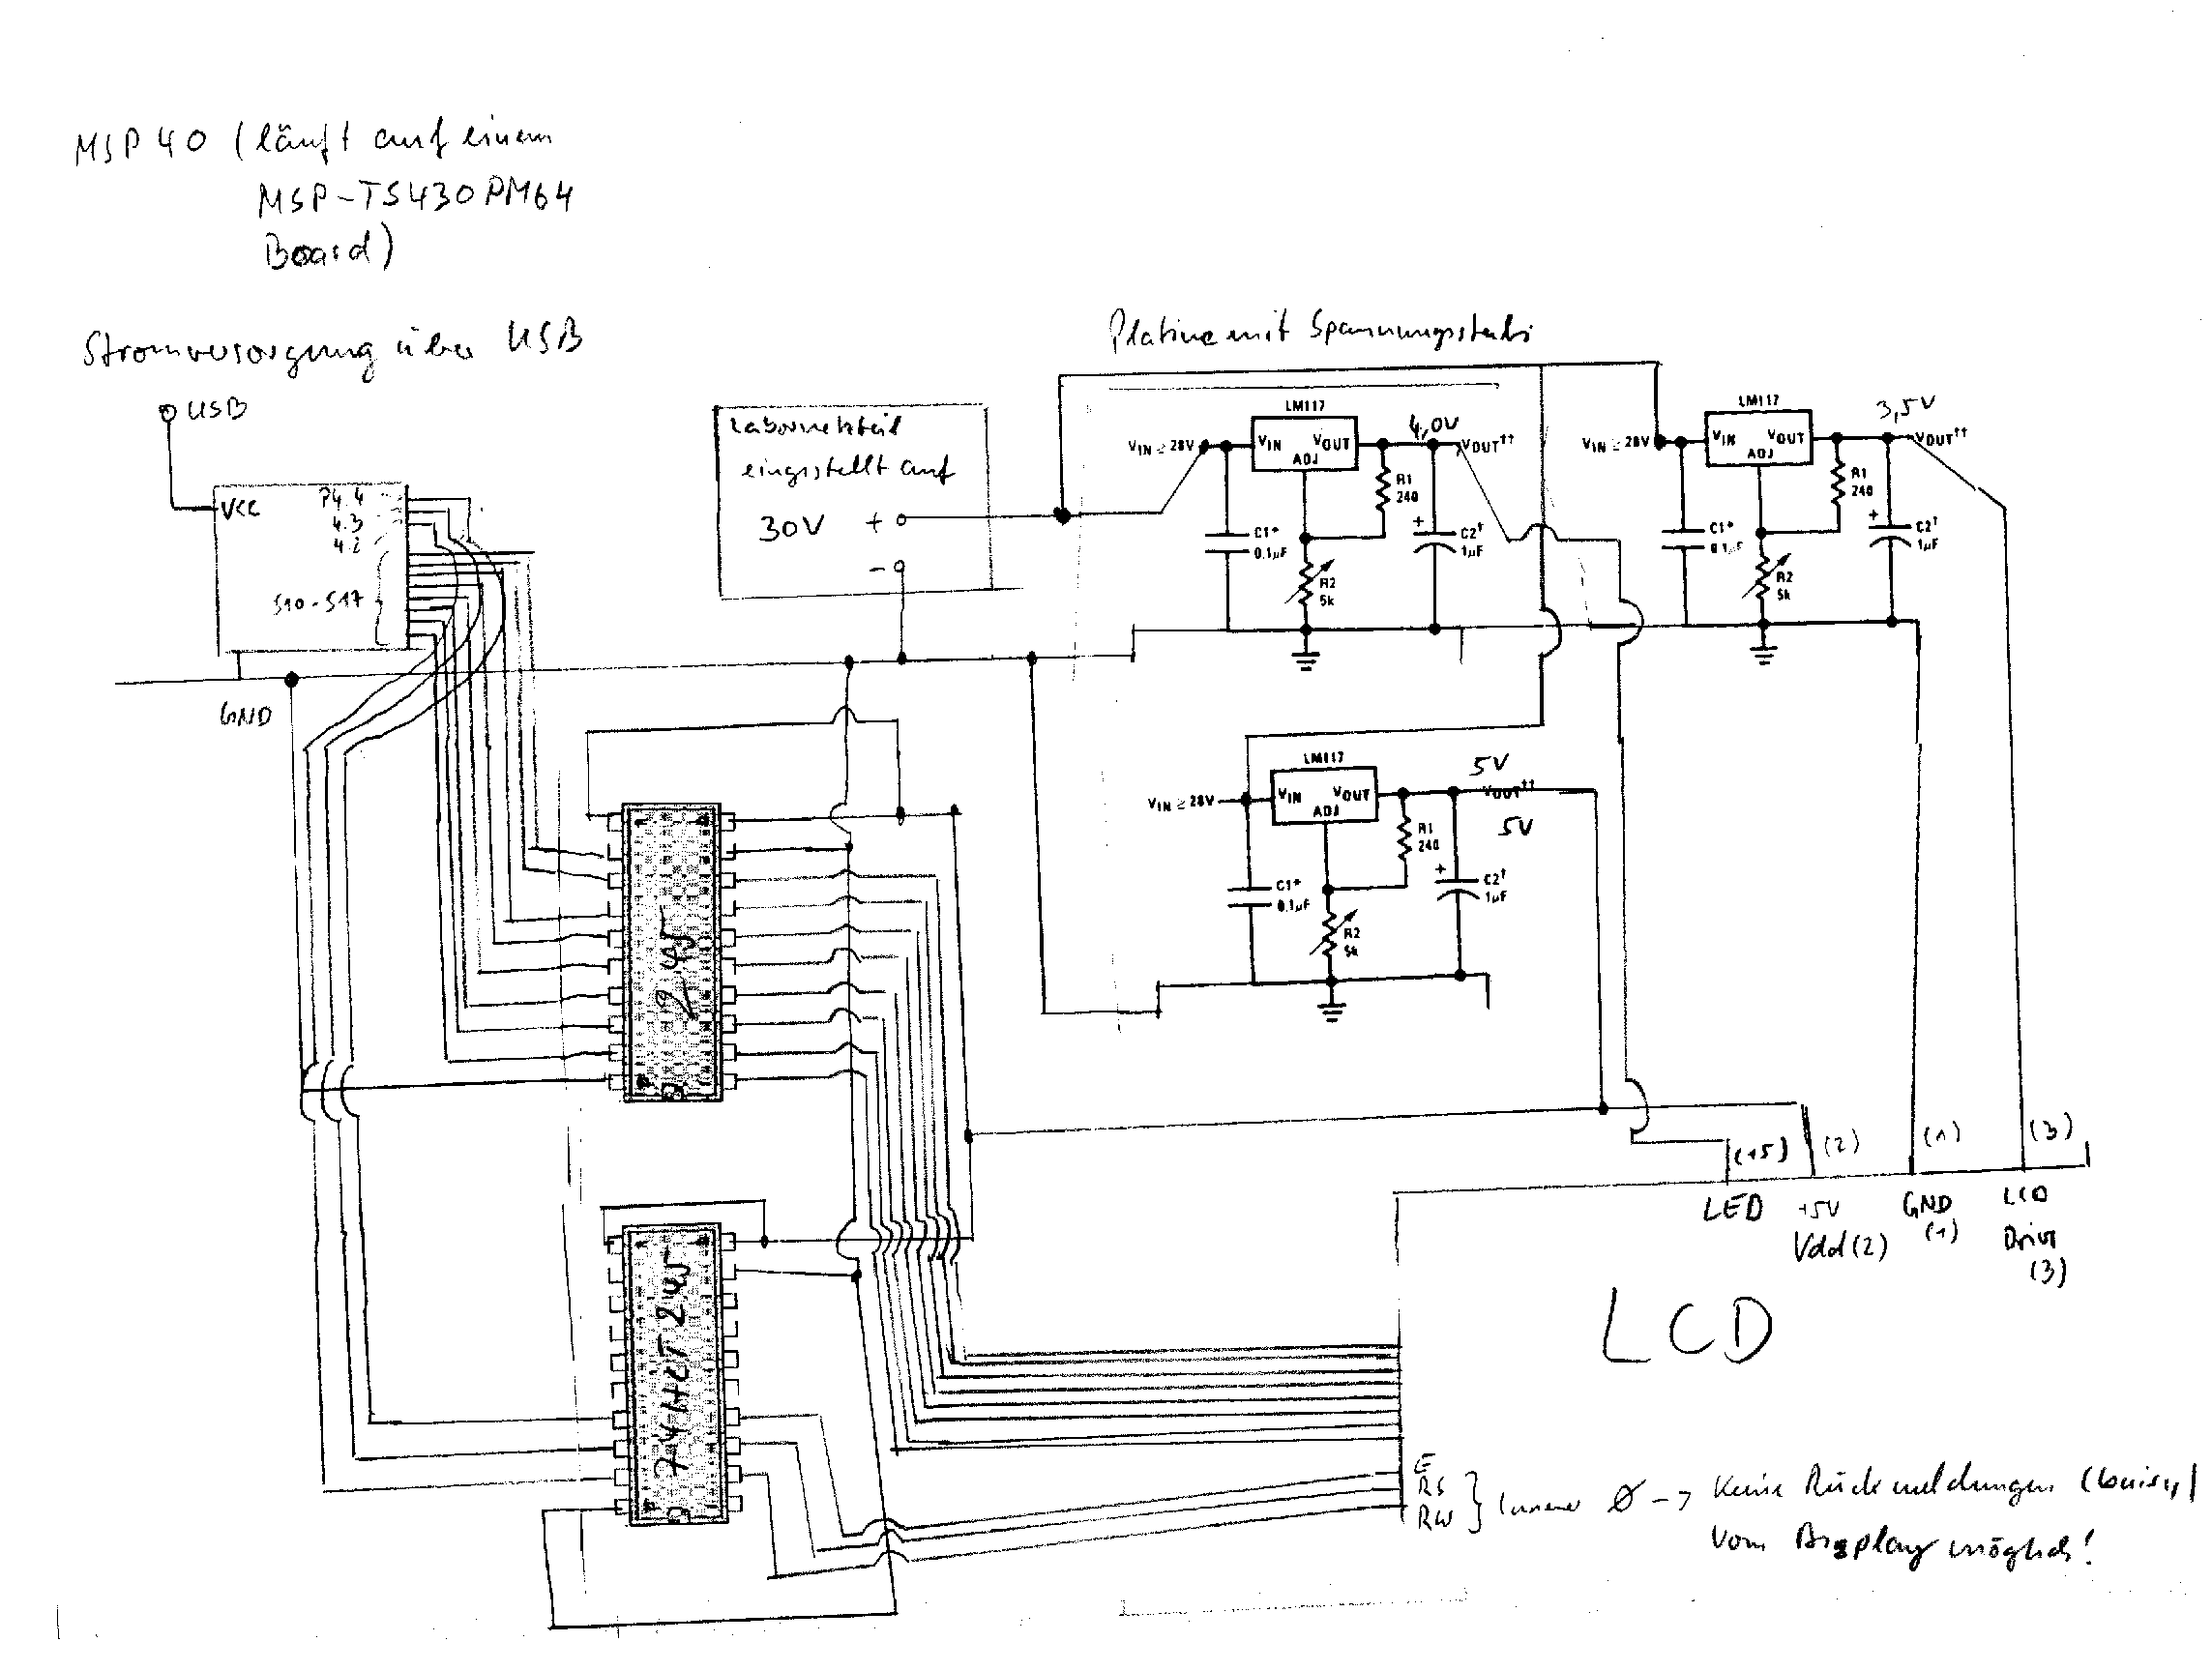 MSP 40 (läuft auf einem
MSP-TS430PM64
Board)
Stromversorgung über USB
USB
VCC
P4.4
4.3
4.2
S10-S17
GND
Labornetzteil
eingestellt auf
30V
+
-
Platine mit Spannungsstabi
LM117
4,0V
VIN ≥ 28V
VIN
VOUT
VOUT††
ADJ
R1
240
C1*
0.1µF
R2
5k
+
C2†
1µF
LM117
3,5V
VIN ≥ 28V
VIN
VOUT
VOUT††
ADJ
R1
240
C1*
0.1µF
R2
5k
+
C2†
1µF
LM117
5V
VIN ≥ 28V
VIN
VOUT
VOUT††
ADJ
5V
R1
240
C1*
0.1µF
R2
5k
+
C2†
1µF
245
74HCT245
(15)
(2)
(1)
(3)
LED
+5V
Vdd(2)
GND
(1)
LCD
Driv
(3)
LCD
E
RS
RW } immer Ø -> Keine Rückmeldungen (busy)
vom Display möglich!